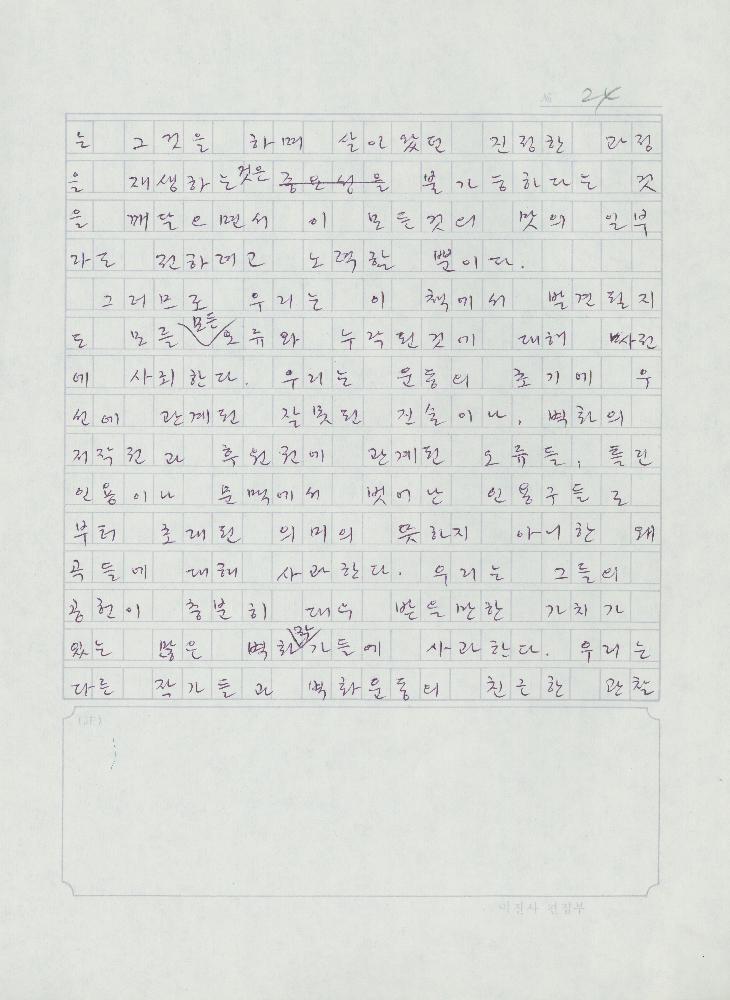 № 24
는 그것을 하며 살아왔던 진정한 과정
을 재생하는것은 중요성을 불가능하다는 것
을 깨달으면서 이 모든것의 맛의 일부
라도 전하려고 노력할 뿐이다.
그러므로 우리는 이 책에서 발견될지
도 모를 모든 오류와 누락된것에 대해 사전
에 사죄한다. 우리는 운동의 초기에 우
선에 관계된 잘못된 진술이나, 벽화의
저작권과 후원권에 관계된 오류들, 틀린
인용이나 문맥에서 벗어난 인용구들로
부터 초래된 의미의 뜻하지 아니한 왜
곡들에 대해 사과한다. 우리는 그들의
공헌이 충분히 대우 받을만한 가치가
있는 많은 벽화작가들에 사과한다. 우리는
다른 작가들과 벽화운동의 친근한 관찰
미진사 편집부